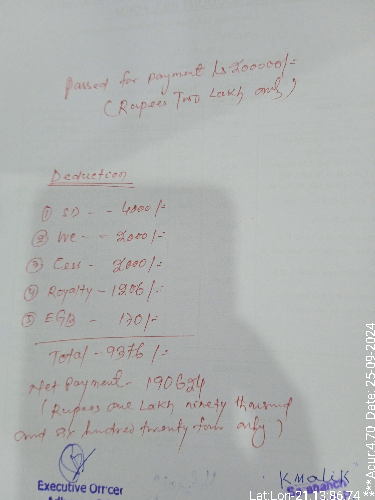 passed for payment Rs 200000/-
(Rupees Two Lakh only)
Deduction
① SD - - 4000/-
② WC - - 2000/-
③ Cess - 2000/-
④ Royalty - 1206/-
⑤ EGB - 170/-
Total - 9376/-
Net Payment - 190624
(Rupees one Lakh ninety thousand
and six hundred twenty four only)
Executive Officer
K Malik
Lat,Lon-21.13,86.74 ***Acur:4.70 Date: 25-09-2024